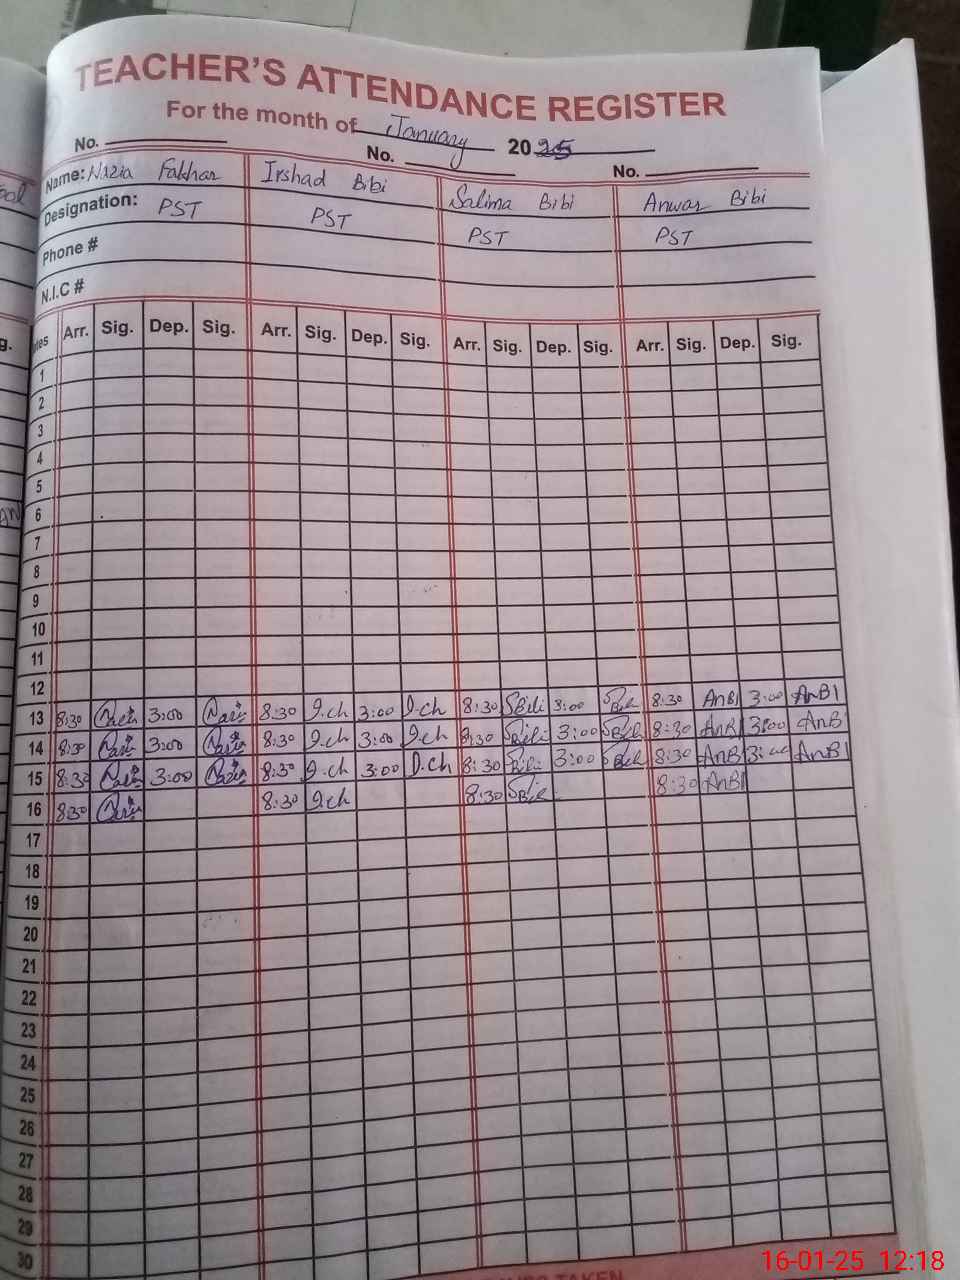 TEACHER'S ATTENDANCE REGISTER
For the month of January 2025
No. No. No.
Name: Nazia Fakhar Irshad Bibi Salima Bibi Anwar Bibi
Designation: PST PST PST PST
Phone #
N.I.C #
Arr. Sig. Dep. Sig. Arr. Sig. Dep. Sig. Arr. Sig. Dep. Sig. Arr. Sig. Dep. Sig.
1
2
3
4
5
6
7
8
9
10
11
12
13 8:30 3:00 8:30 I.ch 3:00 I.ch 8:30 SBibi 3:00 8:30 AnBI 3:00 AnBI
14 8:30 3:00 8:30 I.ch 3:00 I.ch 8:30 3:00 8:30 AnBI 3:00 AnBI
15 8:30 3:00 8:30 I.ch 3:00 I.ch 8:30 3:00 8:30 AnBI 3:00 AnBI
16 8:30 8:30 I.ch 8:30 8:30 AnBI
17
18
19
20
21
22
23
24
25
26
27
28
29
30
TAKEN
16-01-25 12:18